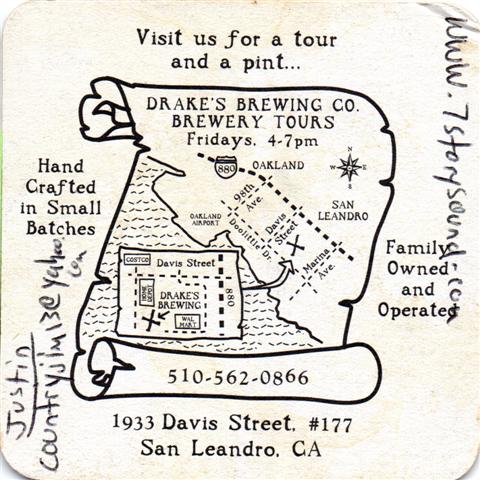 Visit us for a tour
and a pint...
DRAKE'S BREWING CO.
BREWERY TOURS
Fridays, 4-7pm
880
OAKLAND
N
W
E
S
98th
Ave.
SAN
LEANDRO
OAKLAND
AIRPORT
Davis
Street
Doolittle Dr.
Marina
Ave.
Hand
Crafted
in Small
Batches
Family
Owned
and
Operated
COSTCO
Davis Street
HOME
DEPOT
DRAKE'S
BREWING
880
WAL
MART
510-562-0866
1933 Davis Street, #177
San Leandro, CA
www.7storysound.com
Justin
countryjim13@yahoo
.com